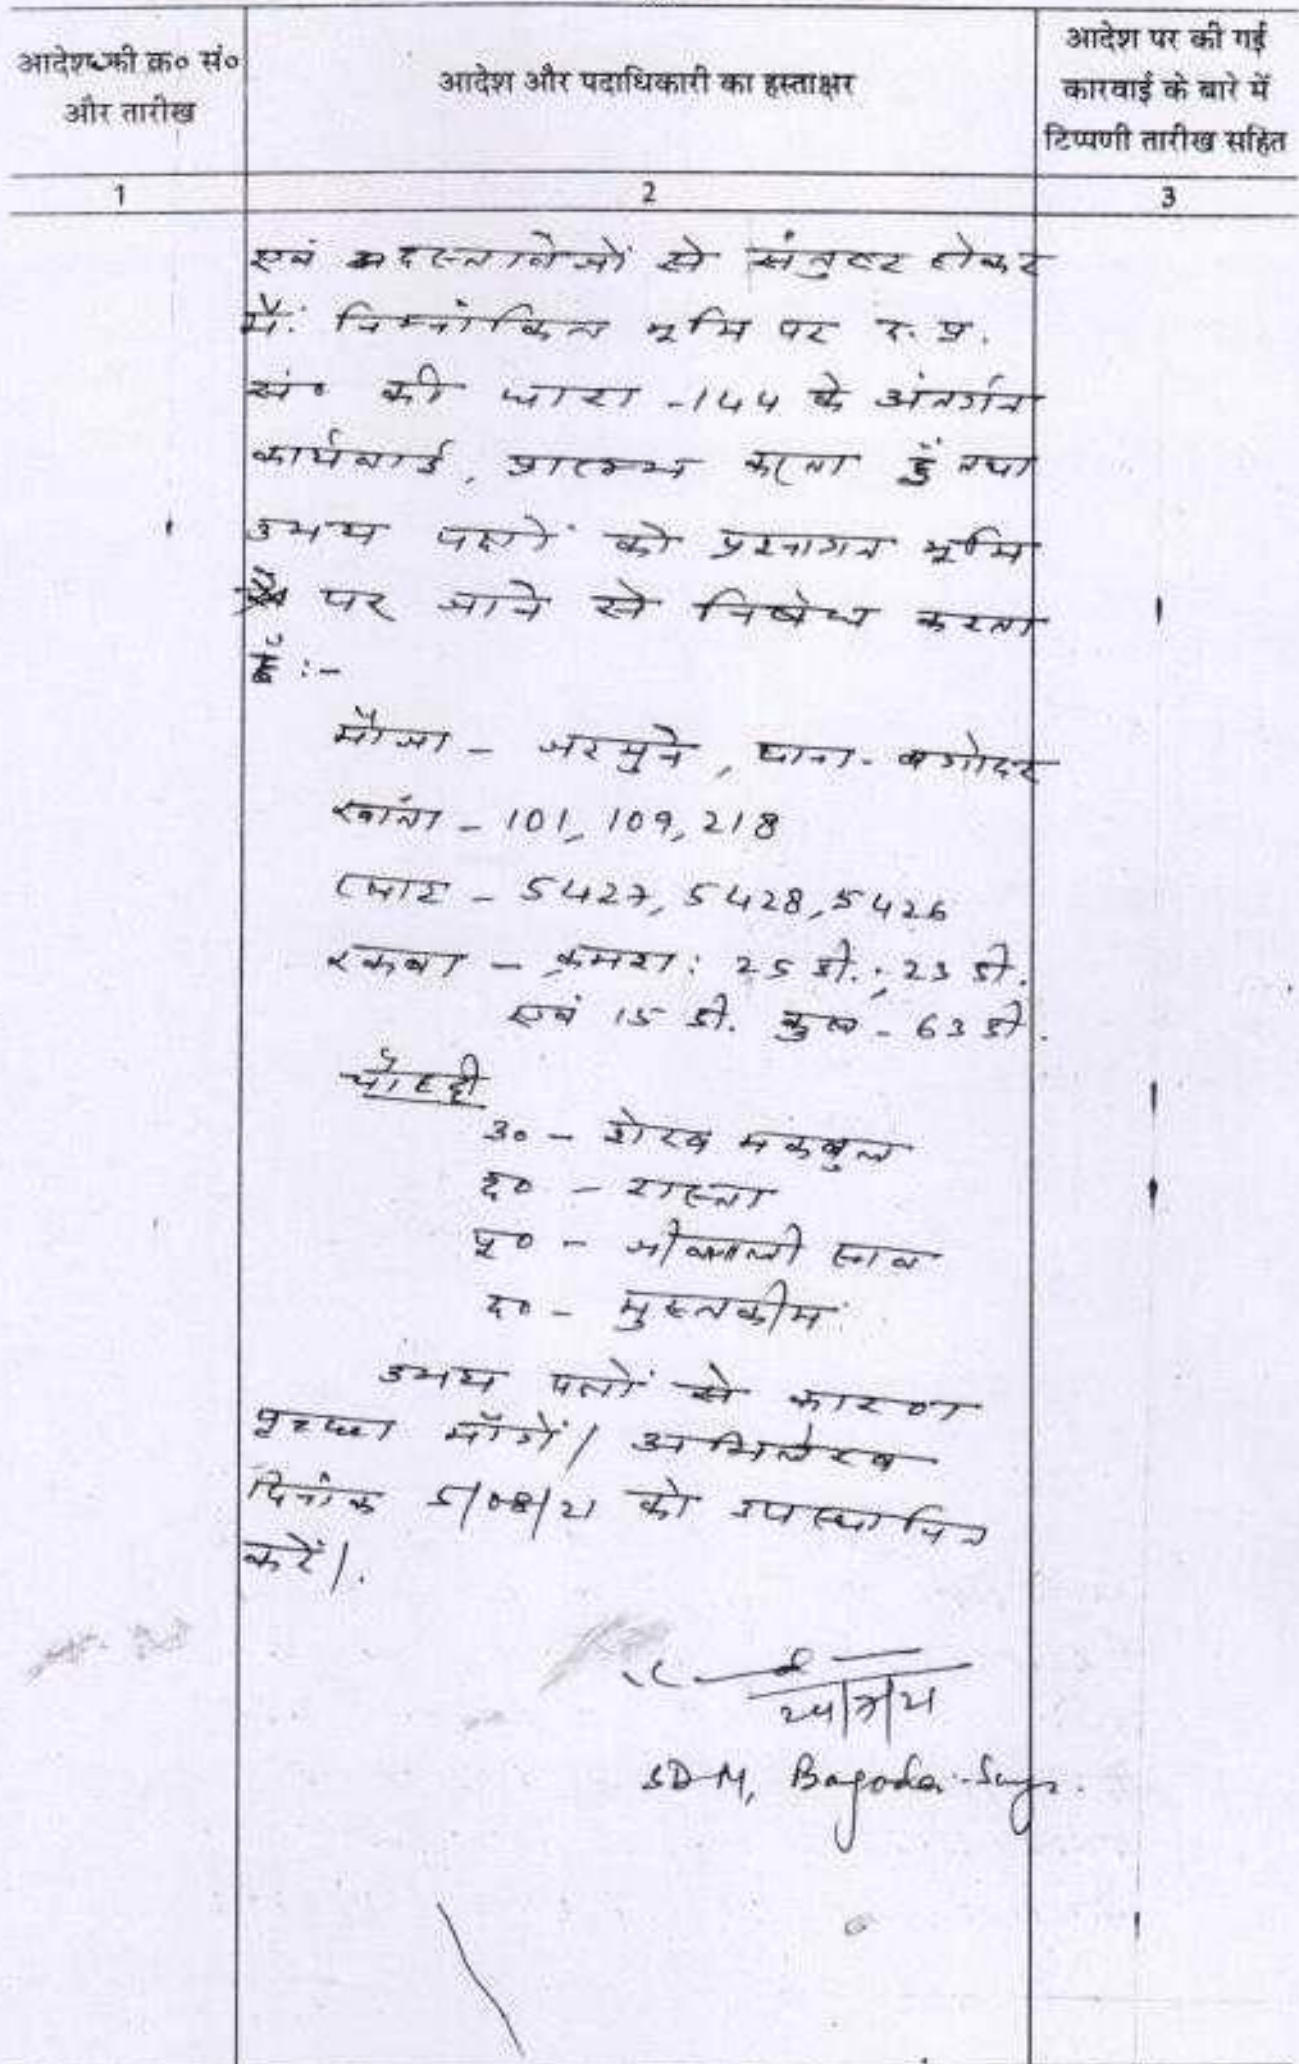 आदेश की क्र० सं०
और तारीख
आदेश और पदाधिकारी का हस्ताक्षर
आदेश पर की गई
कारवाई के बारे में
टिप्पणी तारीख सहित
1
2
3
एवं दस्तावेजों से संतुष्ट होकर
मैं निम्नांकित भूमि पर द. प्र.
सं० की धारा - 144 के अंतर्गत
कार्यवाई, प्रारम्भ करता हूँ तथा
उभय पक्षों को प्रश्नागत भूमि
पर जाने से निषेध करता
हूँ :-
मौजा - जरमुने, थाना - बगोदर
खाता - 101, 109, 218
प्लाट - 5427, 5428, 5426
रकबा - क्रमश: 25 डी., 23 डी.
एवं 15 डी. कुल - 63 डी.
चौहद्दी
उ० - शेख मकबुल
द० - रास्ता
पू० - साव
प० - मुस्तकीम
उभय पक्षों से कारण
पृच्छा माँगें। अभिलेख
दिनांक 5/08/21 को उपस्थापित
करें।
SDM, Bagodar-